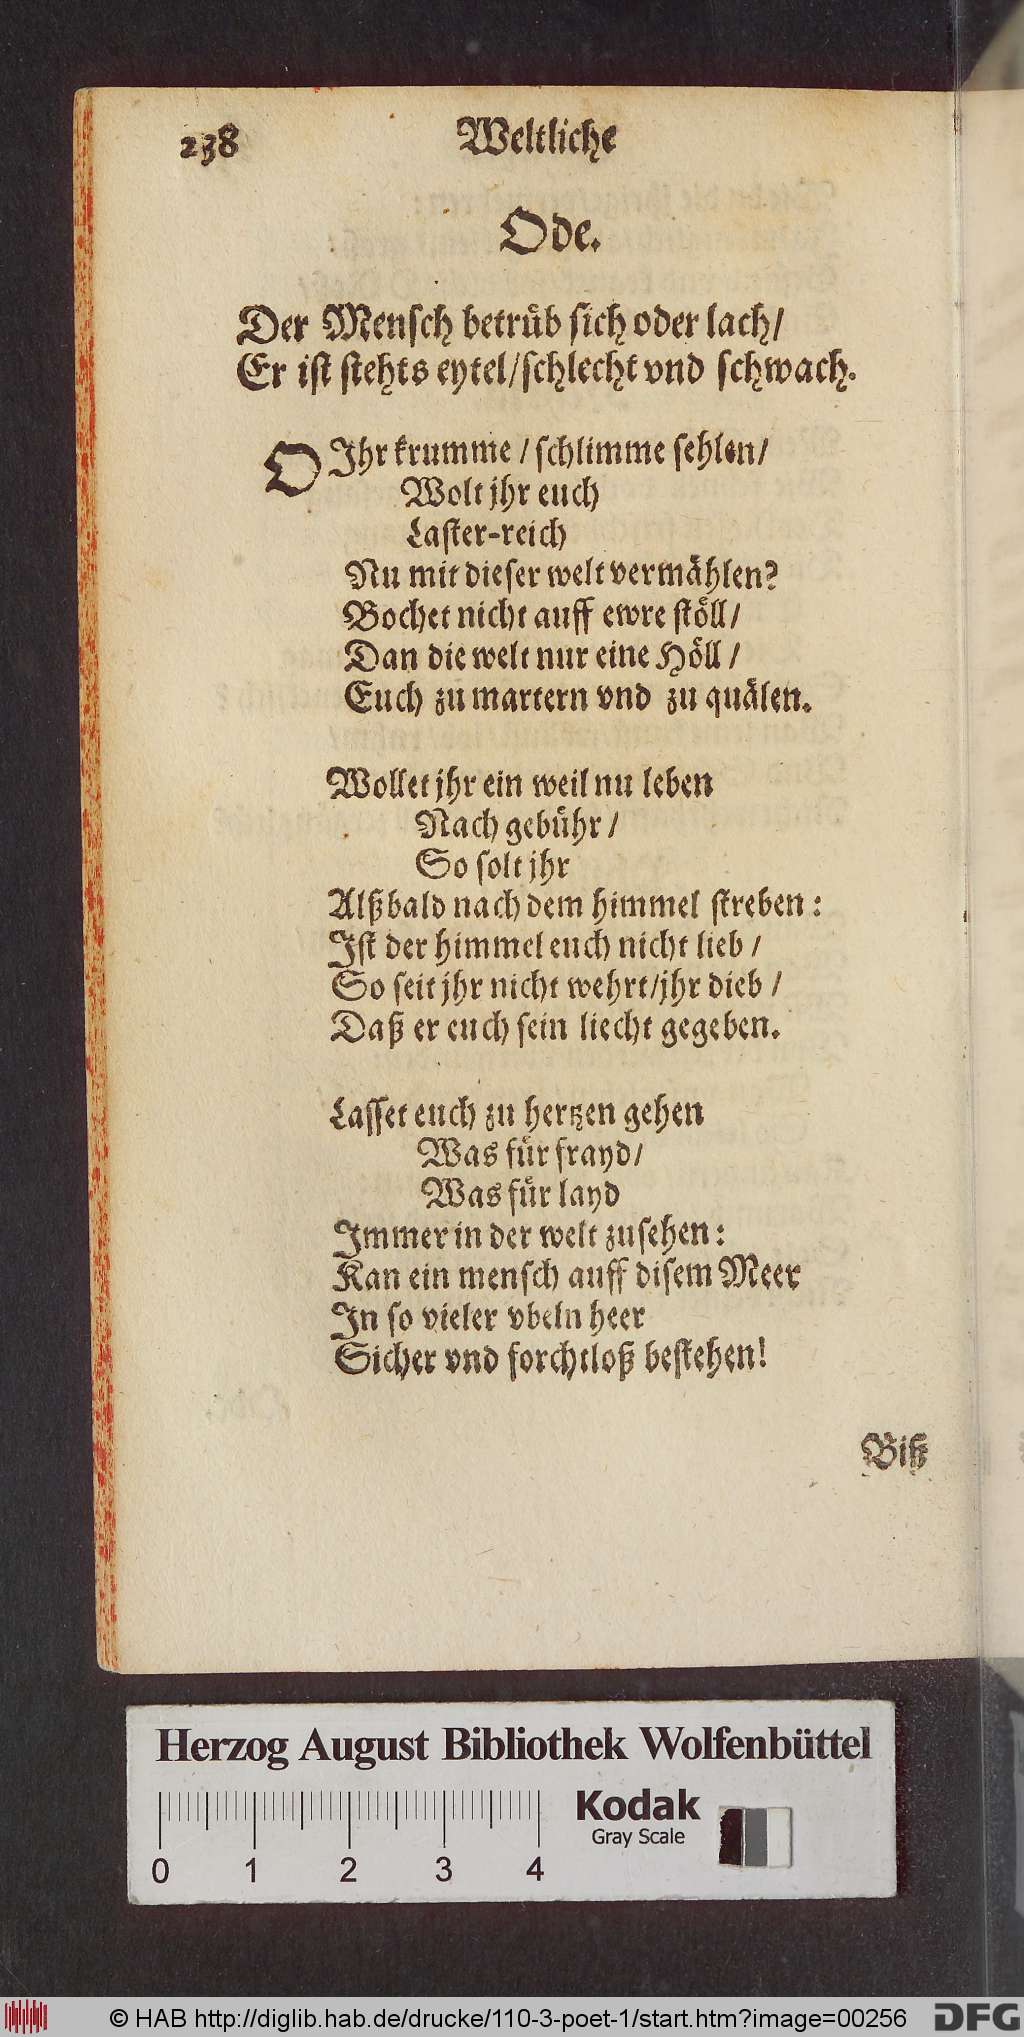 238 Weltliche
Ode.
Der Mensch betrüb sich oder lach/
Er ist stehts eytel/schlecht vnd schwach.
O Ihr krumme / schlimme sehlen/
Wolt jhr euch
Laster-reich
Nu mit dieser welt vermählen?
Bochet nicht auff ewre stöll/
Dan die welt nur eine Höll /
Euch zu martern vnd zu quälen.
Wollet jhr ein weil nu leben
Nach gebühr /
So solt jhr
Alßbald nach dem himmel streben :
Ist der himmel euch nicht lieb /
So seit jhr nicht wehrt/jhr dieb /
Daß er euch sein liecht gegeben.
Lasset euch zu hertzen gehen
Was für frayd/
Was für layd
Immer in der welt zusehen :
Kan ein mensch auff disem Meer
In so vieler vbeln heer
Sicher vnd forchtloß bestehen!
Biß
Herzog August Bibliothek Wolfenbüttel
Kodak
Gray Scale
0 1 2 3 4
© HAB http://diglib.hab.de/drucke/110-3-poet-1/start.htm?image=00256
DFG